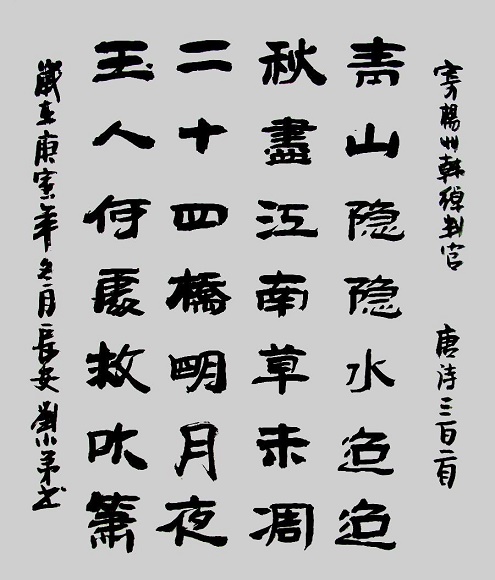 寄楊州韓綽判官 唐诗三百首
青山隐隐水迢迢
秋盡江南草未凋
二十四橋明月夜
玉人何處教吹簫
歲在庚寅年冬月長安劉小弟书